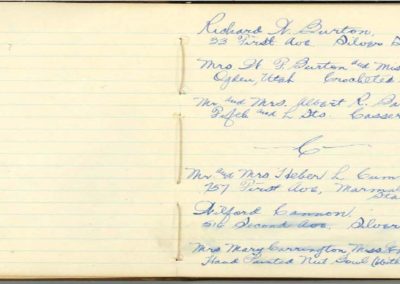 Richard W. Burton,
23 First Ave Silver
Mrs H. P. Burton and Miss
Ogden Utah Crocheted
Mr. and Mrs. Albert R. Ba
Fifth and L Sts. Casser
C
Mr. and Mrs Heber L. Cum
757 First Ave, Marmal
Wilford Cannon
516 Second Ave. Silver
Mrs Mary Carrington, Miss
Hand Painted Nut Bowl (with